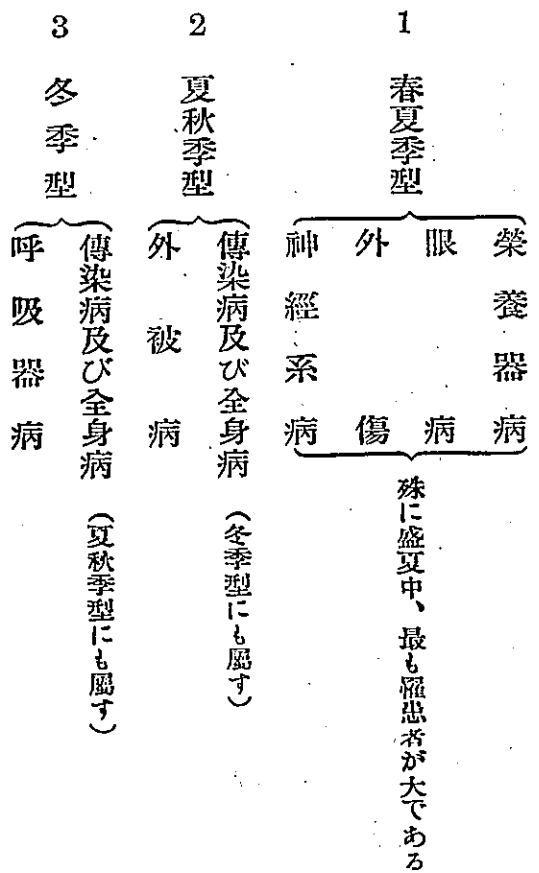 1 春夏季型
榮養器病
眼病
外傷
神經系病
殊に盛夏中、最も罹患者が大である
2 夏秋季型
傳染病及び全身病(冬季型にも屬す)
外被病
3 冬季型
傳染病及び全身病(夏秋季型にも屬す)
呼吸器病